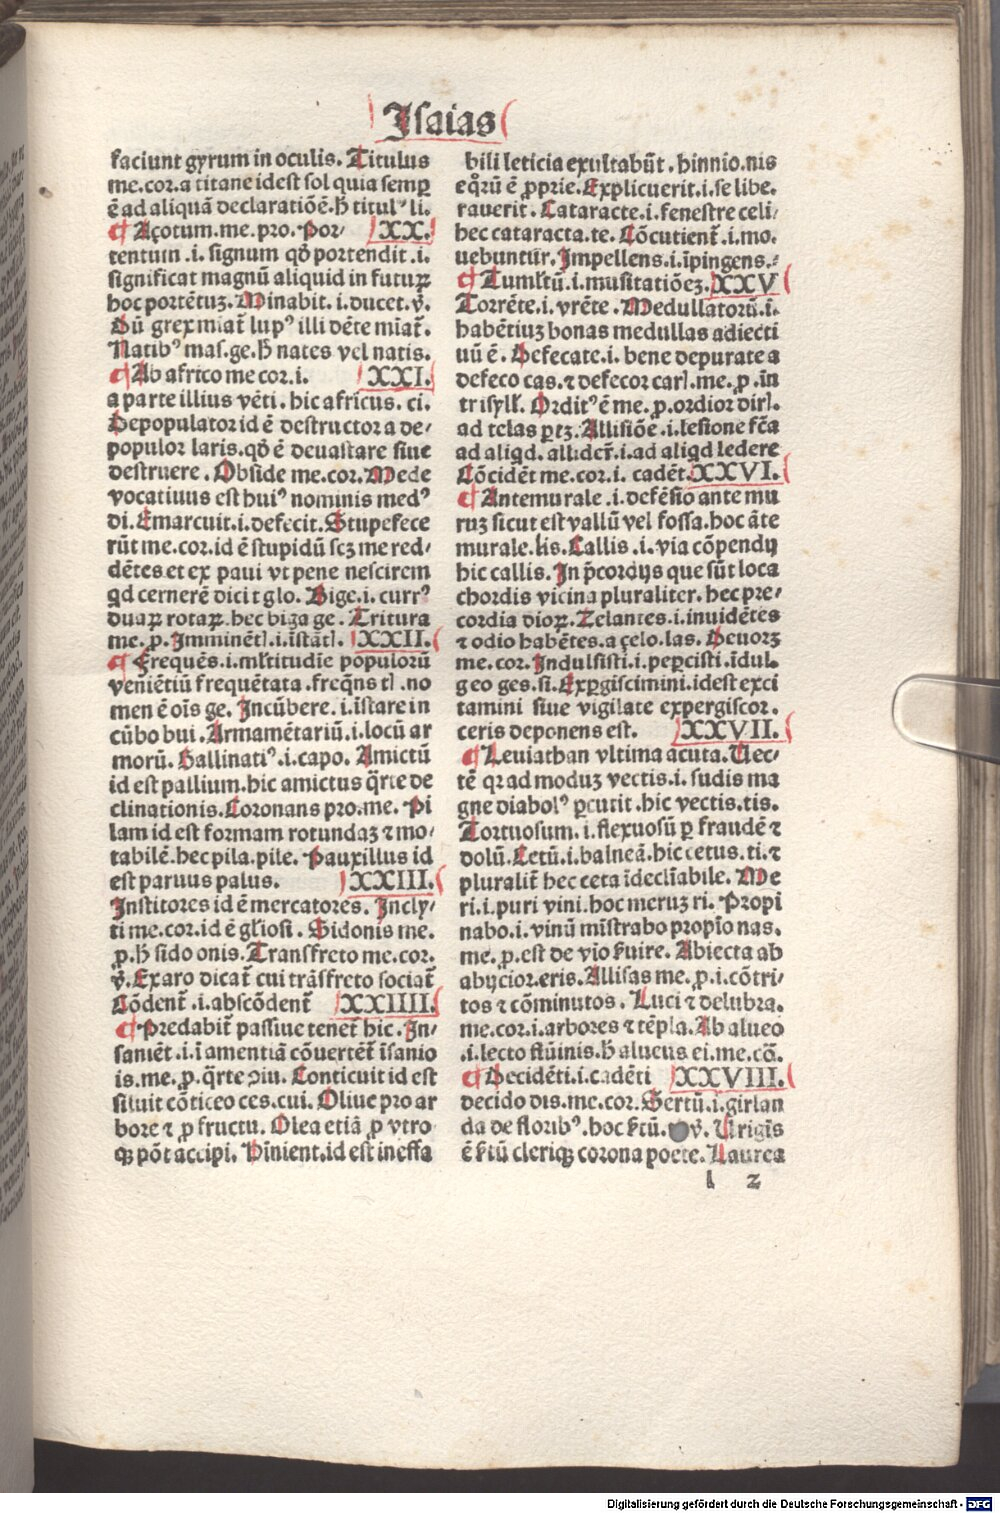 Isaias
faciunt gyrum in oculis. Titulus
me.cor.a titane idest sol quia semꝑ
ē ad aliquā declaratiōē.ħ titulꝰ li.
¶ Açotum.me.pro. Por⸗ XX.
tentum .i. signum qđ portendit .i.
significat magnū aliquid in futuꝝ
hoc portētuꝫ. Minabit.i.ducet.v̄.
Dū grex miat̄ lupꝰ illi dēte miat̄.
Natibꝰ mas.ge.ħ nates vel natis.
¶ Ab africo me cor.i. XXI.
a parte illius vēti. hic africus. ci.
Depopulator id ē destructor a de⸗
populor laris.qđ ē deuastare siue
destruere. Obside me.cor. Mede
vocatiuus est huiꝰ nominis medꝰ
di. Emarcuit.i.defecit. Stupefece
rūt me.cor.id ē stupidū scꝫ me red⸗
dētes et ex paui vt pene nescirem
qd cernerē dicit glo. Bige.i. currꝰ
duaꝝ rotaꝝ.hec biga ge. Tritura
me.ꝓ. Imminētl.i.īstātl. XXII.
¶ Frequēs.i.ml̄titudīe populorū
veniētiū frequētata.freq̄ns tl .no
men ē oīs ge. Incūbere.i.īstare in
cūbo bui. Armamētariū.i.locū ar
morū. Gallinatiꝰ.i.capo. Amictū
id est pallium.hic amictus q̄rte de
clinationis. Coronans pro.me. Pi
lam id est formam rotundaꝫ ⁊ mo⸗
tabilē.hec pila.pile. Pauxillus id
est paruus palus. XXIII.
Institores id ē mercatores. Incly⸗
ti me.cor.id ē gl̄iosi. Sidonis me.
ꝓ.ħ sido onis. Transfreto me.cor.
v̄. Exaro dicat̄ cui trāsfreto sociat̄
Cōdent̄ .i.abscōdent̄ XXIIII.
¶ Predabit̄ passiue tenet̄ hic. In⸗
saniēt.i.ī amentiā cōuertēt̄ īsanio
is.me.ꝓ.q̄rte ꝯiu. Conticuit id est
siluit cōticeo ces.cui. Oliue pro ar
bore ⁊ ꝓ fructu. Olea etiā ꝓ vtro
qꝫ pōt accipi. Hīnient.id est ineffa
bili leticia exultabūt . hinnio.nis
eqͦrū ē ꝓprie. Explicuerit.i.se libe.
rauerit. Cataracte.i.fenestre celi⸗
hec cataracta.te. Cōcutient̄ .i.mo.
uebuntur. Impellens.i.īpingens.
¶ Tuml̄tū.i.musitatiōeꝫ. XXV
Torrēte.i.vrēte. Medullatorū.i.
habētiuꝫ bonas medullas adiecti
uū ē. Defecate.i. bene depurate a
defeco cas.⁊ defecor carl.me.ꝓ.īn
trisyll̄. Orditꝰ ē me.ꝓ.ordior dirl.
ad telas ꝑtꝫ. Allisiōe.i.lesione fc̄a
ad aliqd. allidcr̄.i.ad aliqd ledere
Cōcidēt me.cor.i. cadēt. XXVI.
¶ Antemurale .i.defēsio ante mu
ruꝫ sicut est vallū vel fossa.hoc āte
murale.lis. Callis .i.via cōpendij
hic callis. In p̄cordijs que sūt loca
chordis vicina pluraliter.hec pre⸗
cordia dioꝝ. Zelantes.i.inuidētes
⁊ odio habētes.a çelo.las. Seuorꝫ
me.cor. Indulsisti.i.peꝑcisti.īdul.
geo ges.si. Exꝑgiscimini.idest exci
tamini siue vigilate expergiscor.
ceris deponens est. XXVII.
¶ Leuiathan vltima acuta. Vec⸗
tē qꝛ ad moduꝫ vectis.i. sudis ma
gne diabolꝰ ꝑcutit.hic vectis.tis.
Tortuosum.i.flexuosū ꝑ fraudē ⁊
dolū. Cetū.i.balneā.hic cetus.ti.⁊
pluralit̄ hec ceta īdeclīabile. Me
ri.i.puri vini.hoc meruꝫ ri. Propi
nabo.i.vinū mīstrabo propīo nas.
me.ꝓ.est de vio ħuire. Abiecta ab
abijcior.eris. Allisas me.ꝓ.i.cōtri⸗
tos ⁊ cōminutos. Luci ⁊ delubra.
me.cor.i.arbores ⁊ tēpla. Ab alueo
.i.lecto flūinis.ħ alueus ei.me.cō.
¶ Decidēti.i.cadēti XXVIII.
decido dis.me.cor. Sertū.i.girlan
da de floribꝰ.hoc ẜtū. v̄. Virgīs
ē ẜtū clericꝫ corona poete. Laurea
l 2
Digitalisierung gefördert durch die Deutsche Forschungsgemeinschaft - DFG